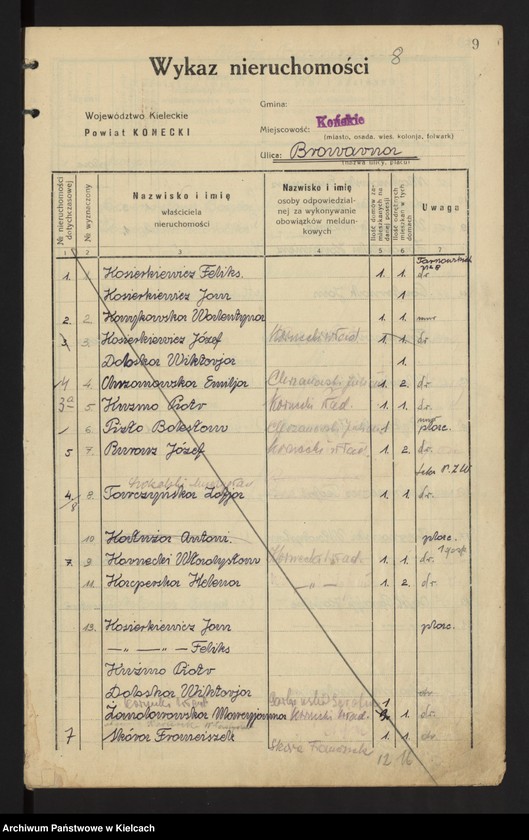 9
Wykaz nieruchomości 8
Województwo Kieleckie
Powiat KONECKI
Gmina:
Miejscowość: Końskie
(miasto, osada, wieś, kolonja, folwark)
Ulica: Browarna
(nazwa ulicy, placu)
№ nieruchomości dotychczasowej
№ wyznaczony
Nazwisko i imię właściciela nieruchomości
Nazwisko i imię osoby odpowiedzialnej za wykonywanie obowiązków meldunkowych
Ilość domów zamieszkanych na danej posesji
Ilość odrębnych mieszkań w tych domach
Uwaga
1 2 3 4 5 6 7
1. 1. Kosierkiewicz Feliks. 1. 1. dr.
Kosierkiewicz Jan 1.
2. 2. Kamykowska Walentyna 1. 1. mur
3. Kosierkiewicz Józef 1 1. dr
Dolaska Wiktorja 1.
4 4. Chrzanowska Emilja Chrzanowski Juljan 1. 2. dr.
3a 5. Kuźmo Piotr Kornecki Wład. 1. 1. dr.
6 Pizło Bolesław Chrzanowski Juljan 1 plac.
5 7. Buras Józef Kornecki Wład. 1. 2. dr.
4/8 8. Tarczyńska Zofja 1. 1. dr.
10 Kałuża Antoni. plac.
7. 9 Karnecki Władysław Kornecki Wład. 1. 1. dr.
11 Kacperska Helena — „ — 1. 2. dr
13. Kosierkiewicz Jan plac.
— „ — „ — Feliks
Kuźmo Piotr
Dolaska Wiktorja 1
Żmolarowska Marcyjanna Kornecki Wład. 1. dr.
7 Skóra Franciszek Skóra Franciszek 1. 1. dr
12 16
Archiwum Państwowe w Kielcach